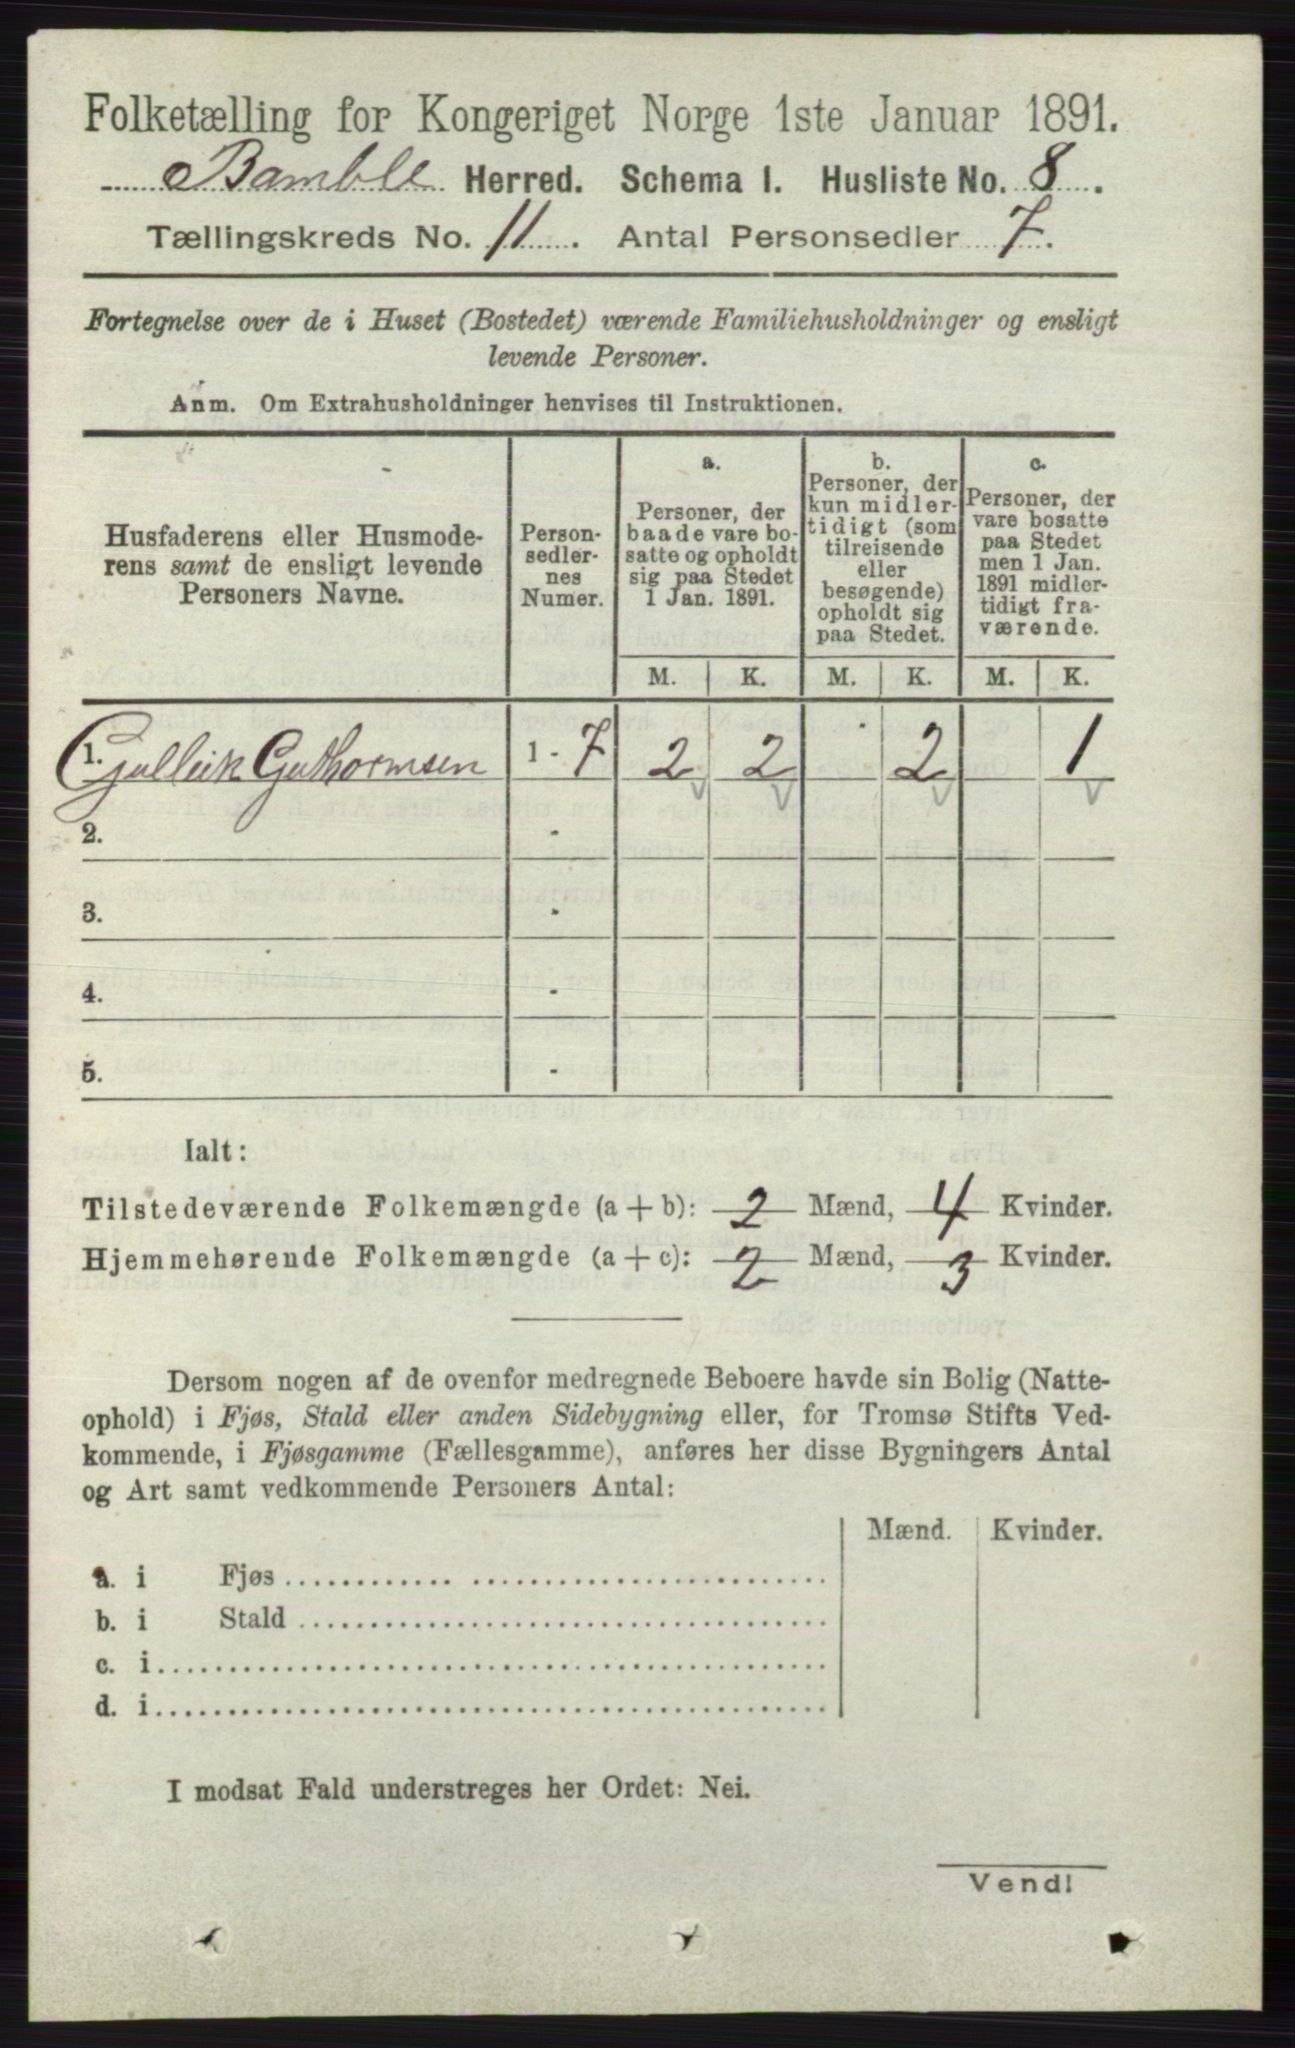 Folketælling for Kongeriget Norge 1ste Januar 1891.
Bamble Herred. Schema I. Husliste No. 8.
Tællingskreds No. 11. Antal Personsedler 7.
Fortegnelse over de i Huset (Bostedet) værende Familiehusholdninger og ensligt
levende Personer.
Anm. Om Extrahusholdninger henvises til Instruktionen.
Husfaderens eller Husmode-
rens samt de ensligt levende
Personers Navne.
Person-
sedler-
nes
Numer.
a.
Personer, der
baade vare bo-
satte og opholdt
sig paa Stedet
1 Jan. 1891.
b.
Personer, der
kun midler-
tidigt (som
tilreisende
eller
besøgende)
opholdt sig
paa Stedet.
c.
Personer, der
vare bosatte
paa Stedet
men 1 Jan.
1891 midler-
tidigt fra-
værende.
M. K. M. K. M. K.
1. Gulleik Guthormsen 1 - 7 2 2 2 1
2. -
3. -
4. -
5. -
Ialt:
Tilstedeværende Folkemængde (a + b): 2 Mænd, 4 Kvinder.
Hjemmehørende Folkemængde (a + c): 2 Mænd, 3 Kvinder.
Dersom nogen af de ovenfor medregnede Beboere havde sin Bolig (Natte-
ophold) i Fjøs, Stald eller anden Sidebygning eller, for Tromsø Stifts Ved-
kommende, i Fjøsgamme (Fællesgamme), anføres her disse Bygningers Antal
og Art samt vedkommende Personers Antal:
Mænd. Kvinder.
a. i Fjøs
b. i Stald
c. i
d. i
I modsat Fald understreges her Ordet: Nei.
Vend!